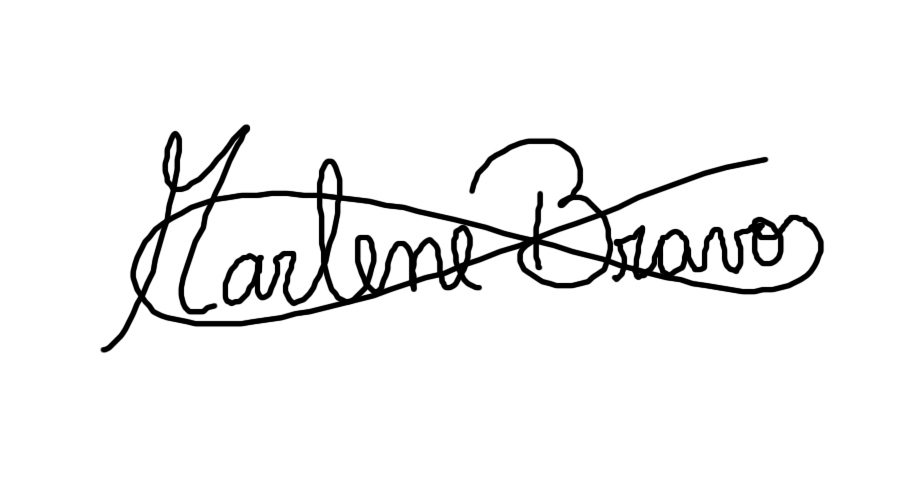 Marlene Bravo